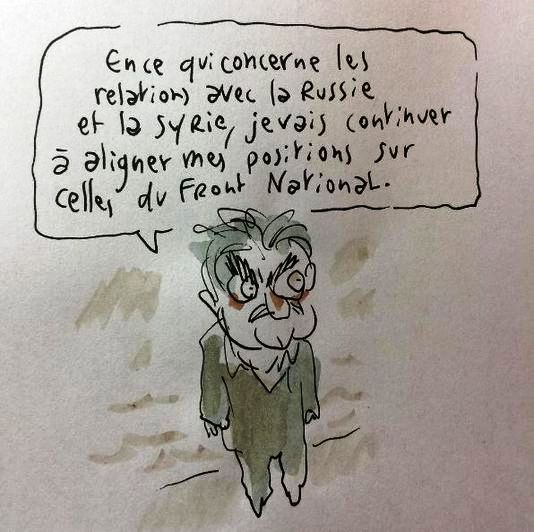 En ce qui concerne les
relations avec la Russie
et la Syrie, je vais continuer
à aligner mes positions sur
celles du Front National.